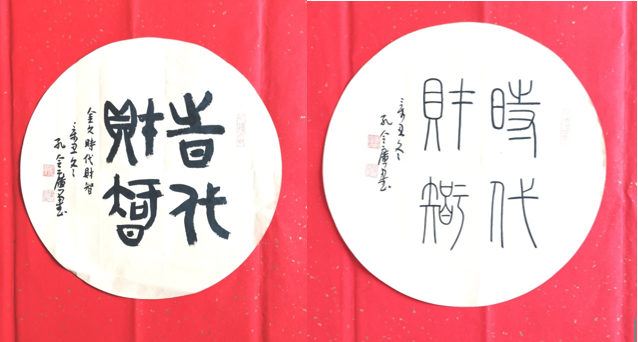 時代
財智
金文時代財智
辛丑冬
孔令廣書
時代
財智
辛丑冬
孔令廣書